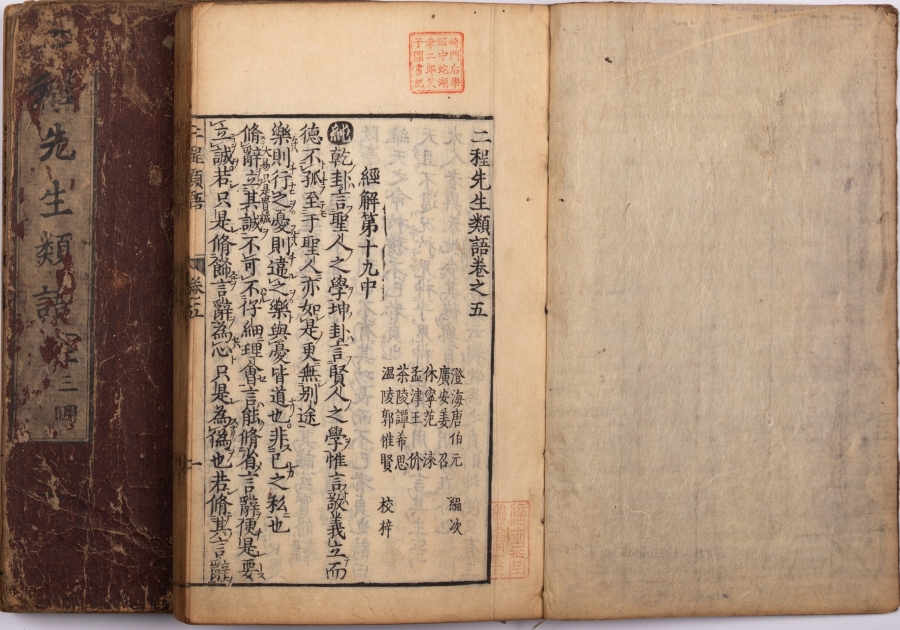 二程先生類語卷之五
澄海唐伯元 編次
廣安姜 召
休寧范 淶
孟津王 价
茶陵譚希思
溫陵郭惟賢 校梓
經解第十九中
純乾卦言聖人之學坤卦言賢人之學惟言敬義立而
德不孤至于聖人亦如是更無別途
樂則行之憂則違之樂與憂皆道也非己之私也
脩辭立其誠不可不仔細理會言能脩省言辭便是要
立誠若只是脩飾言辭為心只是為偽也若脩其言辭
二程類語 卷五 一
崎門后學
田中蛇湖
幸二郎父
子圖書記
先生類語
三